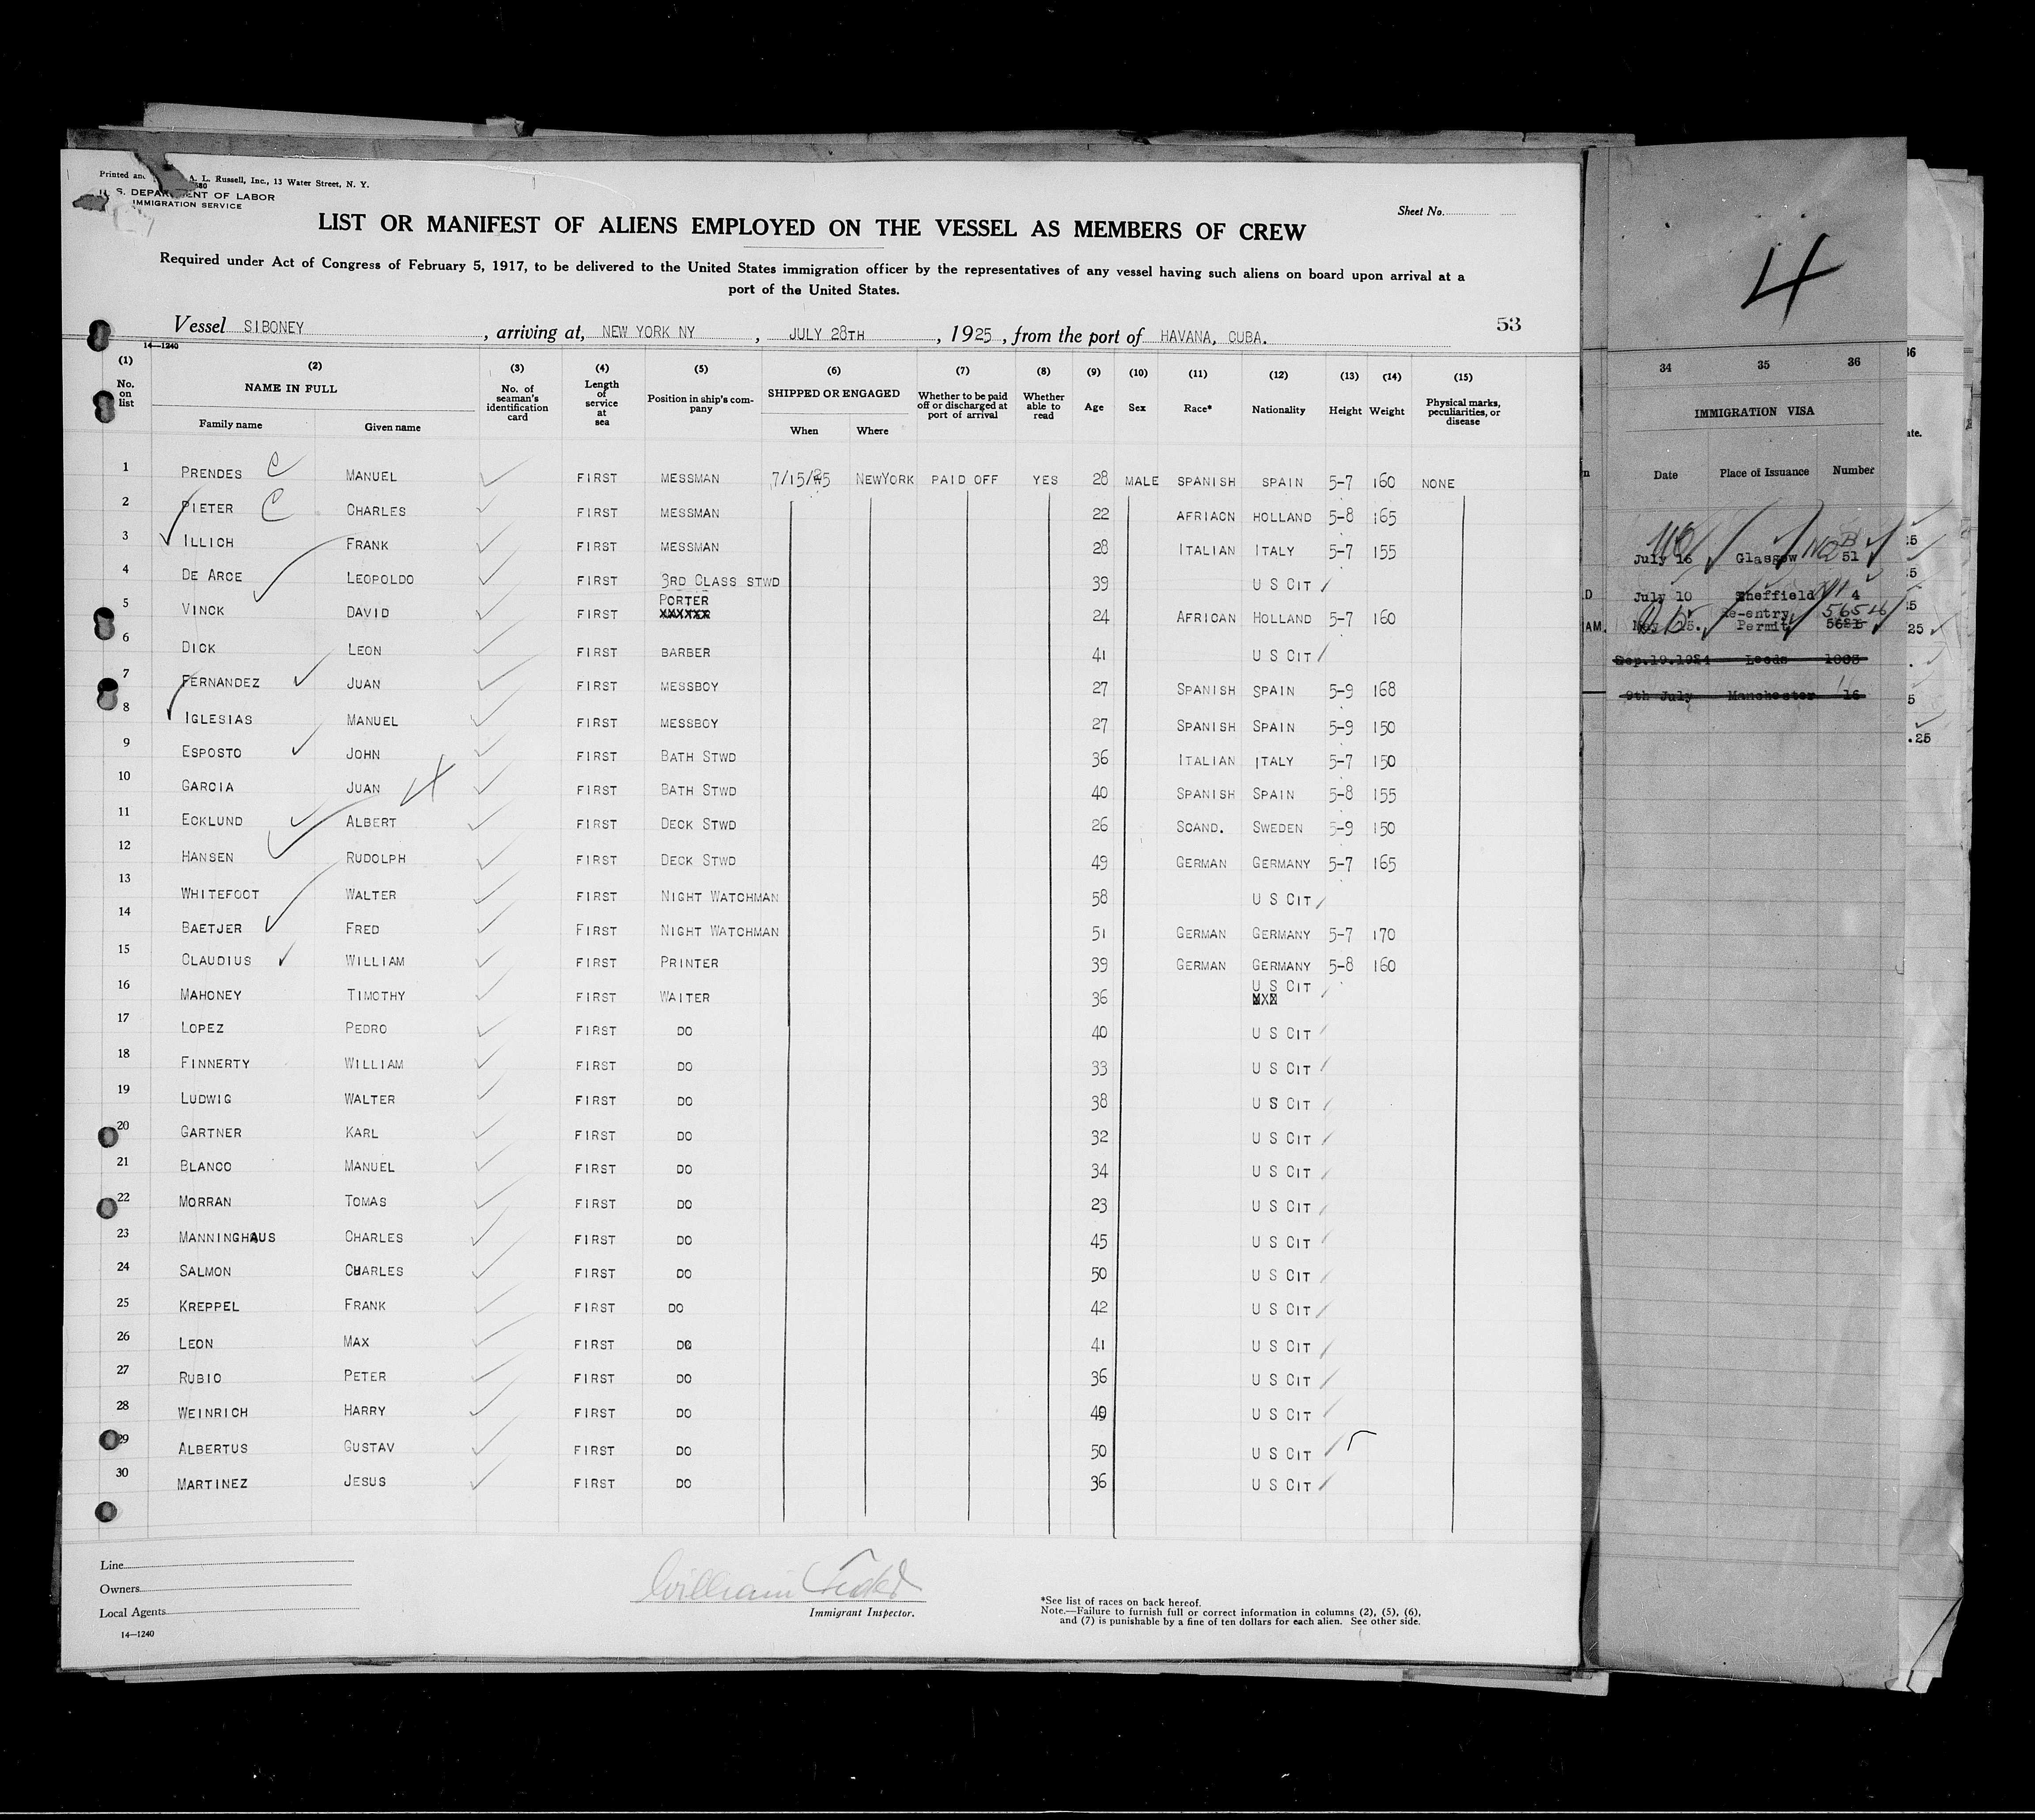 Printed and A. L. Russell, Inc., 13 Water Street, N. Y.
U. S. DEPARTMENT OF LABOR
IMMIGRATION SERVICE
Sheet No.
LIST OR MANIFEST OF ALIENS EMPLOYED ON THE VESSEL AS MEMBERS OF CREW
Required under Act of Congress of February 5, 1917, to be delivered to the United States immigration officer by the representatives of any vessel having such aliens on board upon arrival at a
port of the United States.
53
Vessel SIBONEY, arriving at, NEW YORK NY, JULY 28TH, 1925, from the port of HAVANA, CUBA.
14—1240
(1) (2) (3) (4) (5) (6) (7) (8) (9) (10) (11) (12) (13) (14) (15)
No. on list NAME IN FULL Family name Given name No. of seaman's identification card Length of service at sea Position in ship's company SHIPPED OR ENGAGED When Where Whether to be paid off or discharged at port of arrival Whether able to read Age Sex Race* Nationality Height Weight Physical marks, peculiarities, or disease
1 PRENDES C MANUEL FIRST MESSMAN 7/15/25 NEWYORK PAID OFF YES 28 MALE SPANISH SPAIN 5-7 160 NONE
2 PIETER C CHARLES FIRST MESSMAN 22 AFRIACN HOLLAND 5-8 165
3 ILLICH FRANK FIRST MESSMAN 28 ITALIAN ITALY 5-7 155
4 DE ARCE LEOPOLDO FIRST 3RD CLASS STWD 39 U S CIT
5 VINCK DAVID FIRST PORTER XXXXXX 24 AFRICAN HOLLAND 5-7 160
6 DICK LEON FIRST BARBER 41 U S CIT
7 FERNANDEZ JUAN FIRST MESSBOY 27 SPANISH SPAIN 5-9 168
8 IGLESIAS MANUEL FIRST MESSBOY 27 SPANISH SPAIN 5-9 150
9 ESPOSTO JOHN FIRST BATH STWD 36 ITALIAN ITALY 5-7 150
10 GARCIA JUAN FIRST BATH STWD 40 SPANISH SPAIN 5-8 155
11 ECKLUND ALBERT FIRST DECK STWD 26 SCAND. SWEDEN 5-9 150
12 HANSEN RUDOLPH FIRST DECK STWD 49 GERMAN GERMANY 5-7 165
13 WHITEFOOT WALTER FIRST NIGHT WATCHMAN 58 U S CIT
14 BAETJER FRED FIRST NIGHT WATCHMAN 51 GERMAN GERMANY 5-7 170
15 CLAUDIUS WILLIAM FIRST PRINTER 39 GERMAN GERMANY 5-8 160
16 MAHONEY TIMOTHY FIRST WAITER 36 U S CIT
17 LOPEZ PEDRO FIRST DO 40 U S CIT
18 FINNERTY WILLIAM FIRST DO 33 U S CIT
19 LUDWIG WALTER FIRST DO 38 U S CIT
20 GARTNER KARL FIRST DO 32 U S CIT
21 BLANCO MANUEL FIRST DO 34 U S CIT
22 MORRAN TOMAS FIRST DO 23 U S CIT
23 MANNINGHAUS CHARLES FIRST DO 45 U S CIT
24 SALMON CHARLES FIRST DO 50 U S CIT
25 KREPPEL FRANK FIRST DO 42 U S CIT
26 LEON MAX FIRST DO 41 U S CIT
27 RUBIO PETER FIRST DO 36 U S CIT
28 WEINRICH HARRY FIRST DO 49 U S CIT
29 ALBERTUS GUSTAV FIRST DO 50 U S CIT
30 MARTINEZ JESUS FIRST DO 36 U S CIT
Line
Owners
Local Agents
14—1240
William
Immigrant Inspector.
*See list of races on back hereof.
Note.—Failure to furnish full or correct information in columns (2), (5), (6),
and (7) is punishable by a fine of ten dollars for each alien. See other side.
4
34 35 36
IMMIGRATION VISA
Date Place of Issuance Number
July 16 Glasgow 51
July 10 Sheffield 4
Re-entry 56546
May 15. Permit
Sep.10.1924 Leeds 1003
9th July Manchester 16
36
ate.
25
.25